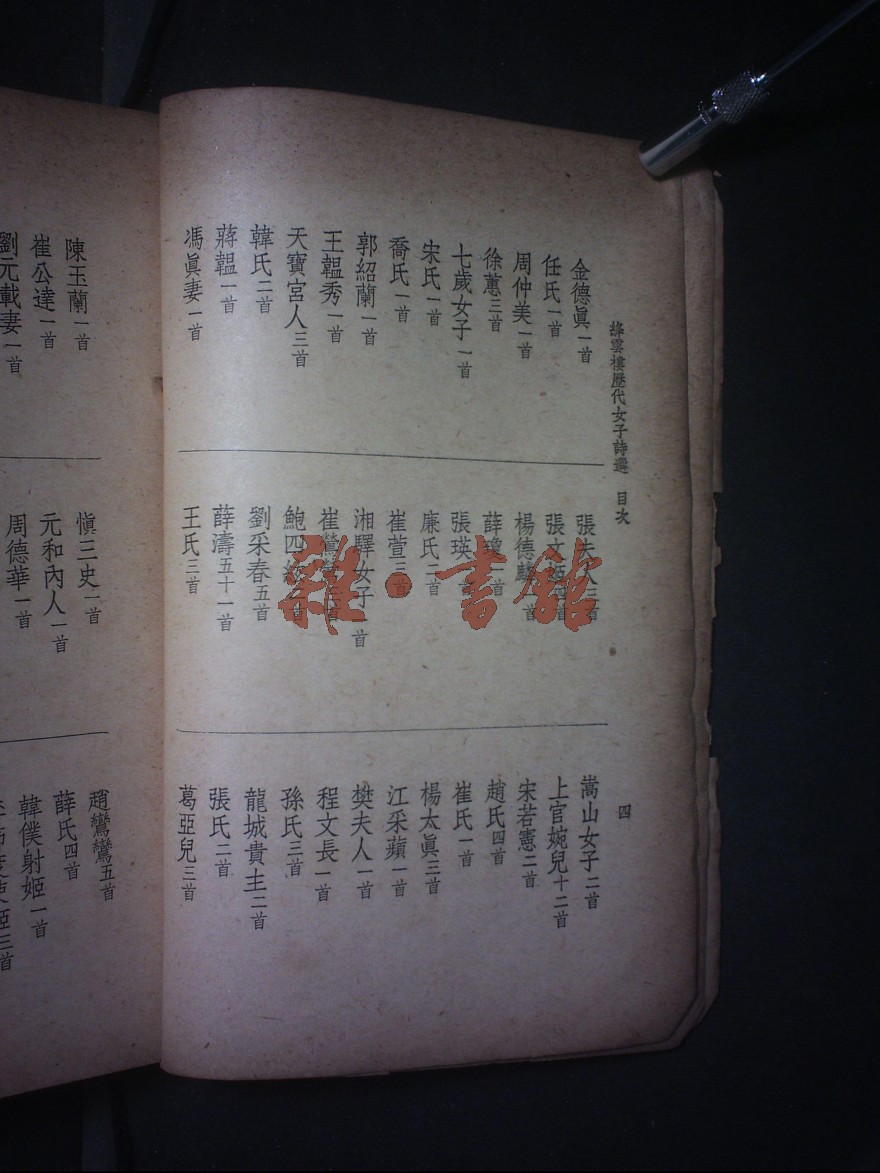 絳雲樓歷代女子詩選 目次
四
金德眞一首
任氏一首
周仲美一首
徐蕙三首
七歲女子一首
宋氏一首
喬氏一首
郭紹蘭一首
王韞秀一首
天寶宮人三首
韓氏二首
蔣韞一首
馮眞妻一首
張夫人三首
張文姬首
楊德麟一首
薛瓊首
張瑛
廉氏二首
崔萱三首
湘驛女子一首
崔鶯首
鮑四首
劉采春五首
薛濤五十一首
王氏三首
嵩山女子二首
上官婉兒十二首
宋若憲二首
趙氏四首
崔氏一首
楊太眞三首
江采蘋一首
樊夫人一首
程文長一首
孫氏三首
龍城貴主二首
張氏二首
葛亞兒三首
陳玉蘭一首
崔公達一首
劉元載妻一首
愼三史一首
元和內人一首
周德華一首
趙鸞鸞五首
薛氏四首
韓僕射姬一首
使姬三首
雜·書館